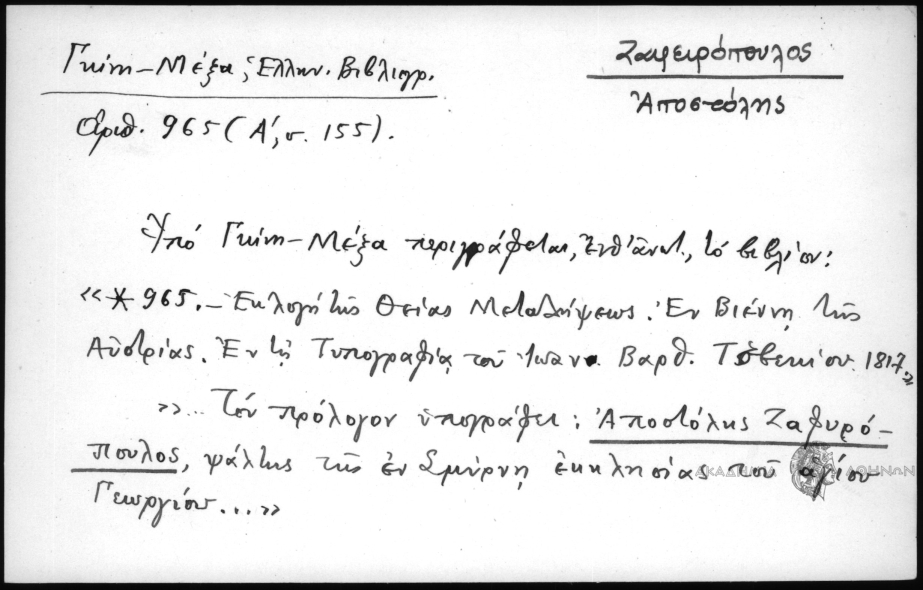 Γκίνη-Μέξα, Ἑλλην. Βιβλιογρ.
Ἀριθ. 965 (Α΄, σ. 155).
Ζαφειρόπουλος
Ἀποστόλης
Ὑπό Γκίνη-Μέξα περιγράφεται, ἔνθ' ἀνωτ., τό βιβλίον:
«* 965. – Ἐκλογή τῆς Θείας Μεταλήψεως. Ἐν Βιέννῃ τῆς
Αὐστρίας. Ἐν τῇ Τυπογραφίᾳ τοῦ Ἰωαν. Βαρθ. Τσβεκίου. 1817.»
»... Τόν πρόλογον ὑπογράφει: Ἀποστόλης Ζαφυρό-
πουλος, ψάλτης τῆς ἐν Σμύρνῃ ἐκκλησίας τοῦ ἁγίου
Γεωργίου...»
ΑΚΑΔΗΜΙΑ ΑΘΗΝΩΝ